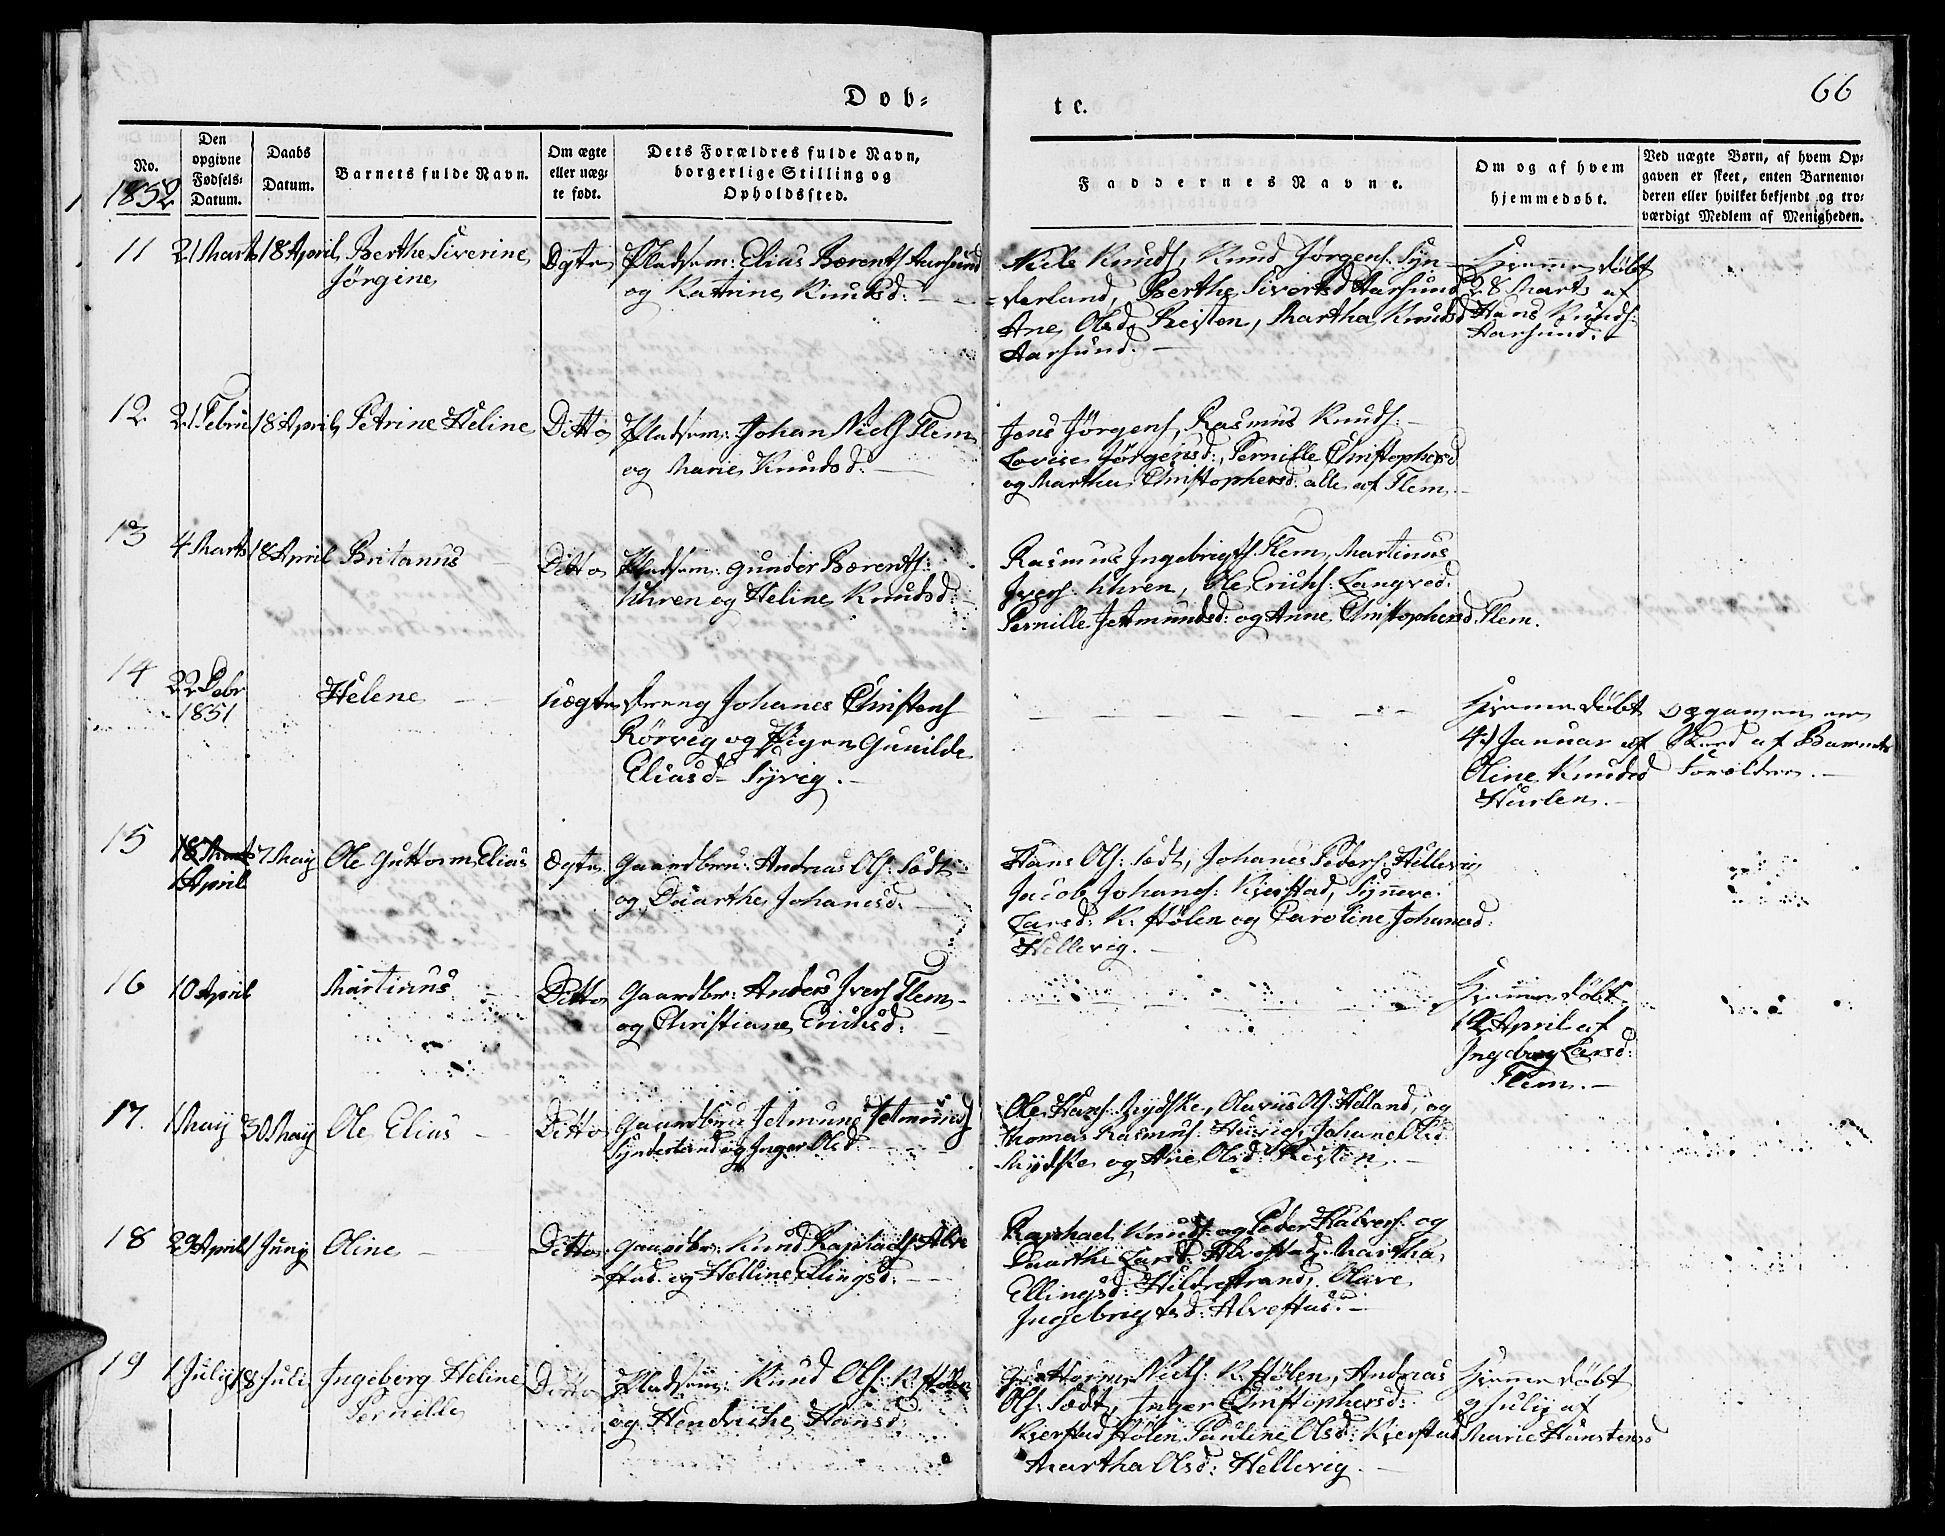 Døb-
te.
66
No.
Den opgivne Fødsels-Datum.
Daabs Datum.
Barnets fulde Navn.
Om ægte eller uæg-te født.
Dets Forældres fulde Navn, borgerlige Stilling og Opholdssted.
Faddernes Navne.
Om og af hvem hjemmedøbt.
Ved uægte Børn, af hvem Op-gaven er skeet, enten Barnemo-deren eller hvilket bekjendt og tro-værdigt Medlem af Menigheden.
1852
11 21 Marts 18 April Berthe Siverine Jörgine Ægte
Pladsem: Elias Bærents Aarsund
og Katrine Knudsd:
Niels Knuds, Knud Jörgens: Syn-
derland, Berthe Sivertsd Aarsund
Ane Olsd Reisten, Martha Knudsd
Aarsund.
Hjemmedöbt
28 Marts af
Hans Knuds:
Aarsund.
12 21 Febru 18 April Petrine Heline Ditto
Pladsem: Johan Niels Flem
og Marie Knudsd:
Jens Jörgens, Rasmus Knuds:
Lovise Jörgensd:, Pernille Christophersd
og Martha Christophersd: alle af Flem.
13 4 Marts 18 April Britanus Ditto
Pladsem: Gunder Bærents:
Uhren og Heline Knudsd
Rasmus Ingebrigts Flem, Martinus
Ivers. Uhren, Ole Erichs: Langved.
Pernille Jetmundsd: og Anne Christophersd. Flem.
14 22 Debr 1851 Helene Uægte
Dreng Johanes Christens
Rörvig og Pigen Gunilde
Eliasd Syvig.
Hjemmedöbt
4 Januar af
Oline Knudsd
Hurlen.
Opgaven er
Skeed af Barnets
Forældre.
15 18 Marts 1 April 7 May Ole Guttorm Elias Ægte
Gaardbru: Andreas Ols: Sædt
og Daarthe Johanesd:
Hans Ols: Sædt, Johanes Peders: Hellevig
Jacob Johanes: Kjerstad, Synneve
Larsd: K. Hölen og Caroline Johanesd:
Hellevig.
16 10 April Martinus Ditto
Gaardbr: Anders Ivers Flem
og Christiane Erichsd:
Hjemmedöbt
12 April af
Ingeborg Larsd:
Flem.
17. 1 May 30 May Ole Elias Ditto
Gaardbru Jetmund Jetmunds
Synderland og Inger Olsd
Ole Hans: Mydske, Olavus Ols: Helland, og
Thomas Rasmus: Husvig, Johane Olsd
Mydske og Ane Olsd: Reisten.
18 29 April 1 Juny Oline Ditto
Gaardbr: Knud Raphaels Alve
stad og Helline Ellingsd:
Raphael Knuds: og Peder Halvers: og
Daarthe Larsd Alvestad. Martha
Ellingsd: Hildrestrand, Olave
Ingebrigtsd: Alvestad.
19 1 July 18 Juli Ingeborg Heline Pernille Ditto
Pladsem: Knud Ols: K. Hölen
og Hendriche Hansd:
Guttorm Niels: K. Hölen, Andreas
Ols. Sædt, Inger Christophersd:
Kjerstad Hölen, Pauline Olsd: Kjerstad
Martha Olsd: Hellevig
Hjemmedöbt
9 July af
Marie Hanstensd